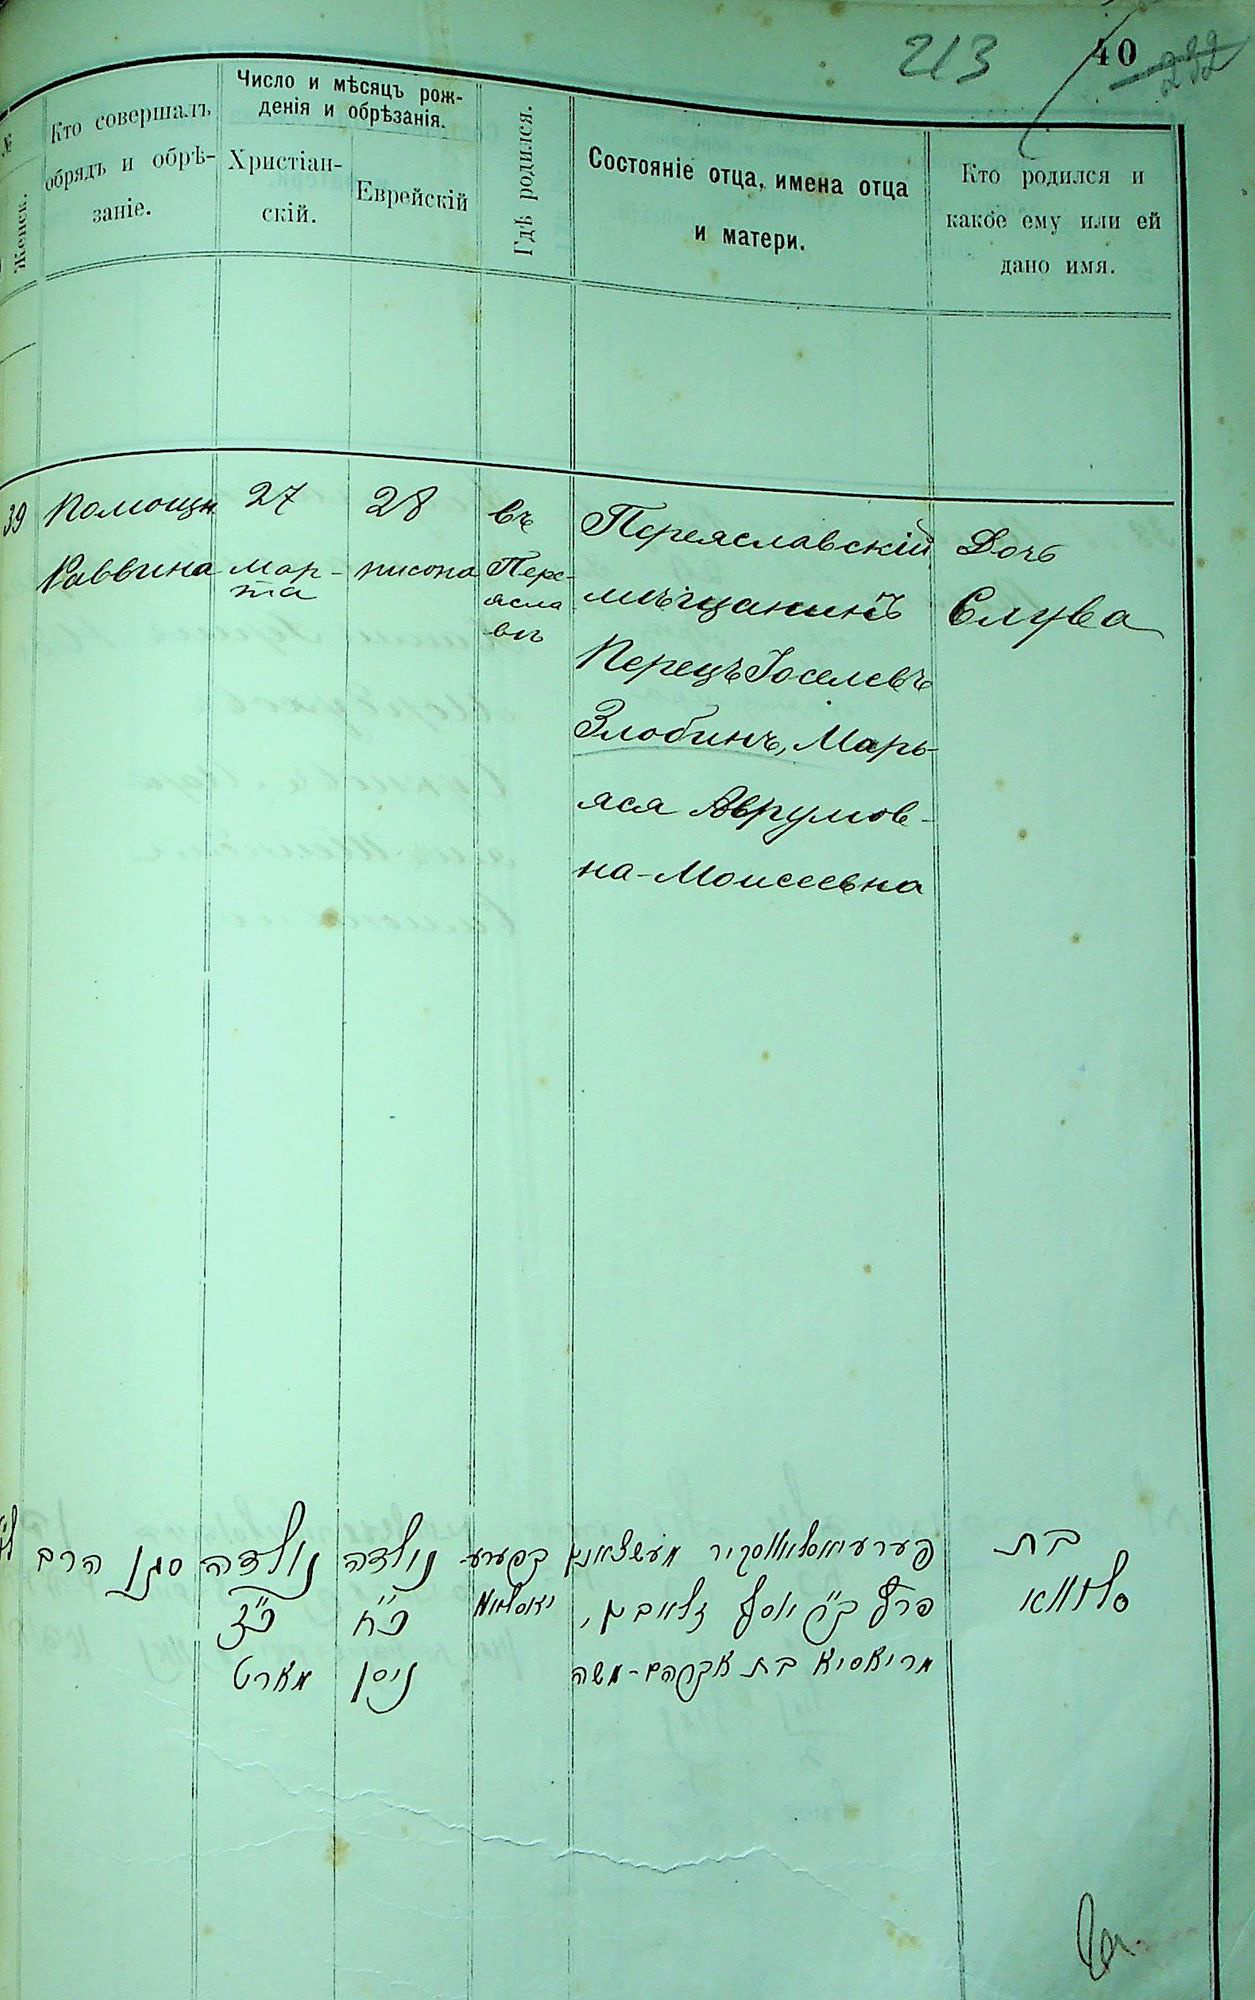 213
40
232
№
Женск.
Кто совершалъ
обрядъ и обрѣ-
заніе.
Число и мѣсяцъ рож-
денія и обрѣзанія.
Христіан-
скій.
Еврейскій
Гдѣ родился.
Состояніе отца, имена отца
и матери.
Кто родился и
какое ему или ей
дано имя.
39
Помощн
Раввина
27
мар-
та
28
нисона
въ
Пере-
ясла
въ
Переяславскій
мѣщанинъ
Перецъ Іоселевъ
Злобинъ, Марь-
яся Аврумов-
на-Моисеевна
Дочь
Слува
סגן הרב
נולדה
כ״ז
מארט
נולדה
כ״ח
ניסן
בפערע-
יאסלאוו
פערעיאסלאווסקיר מעשצאנין
פרץ ב״ר יוסף זלאבין,
מריאסיא בת אברהם-משה
בת
סלווא